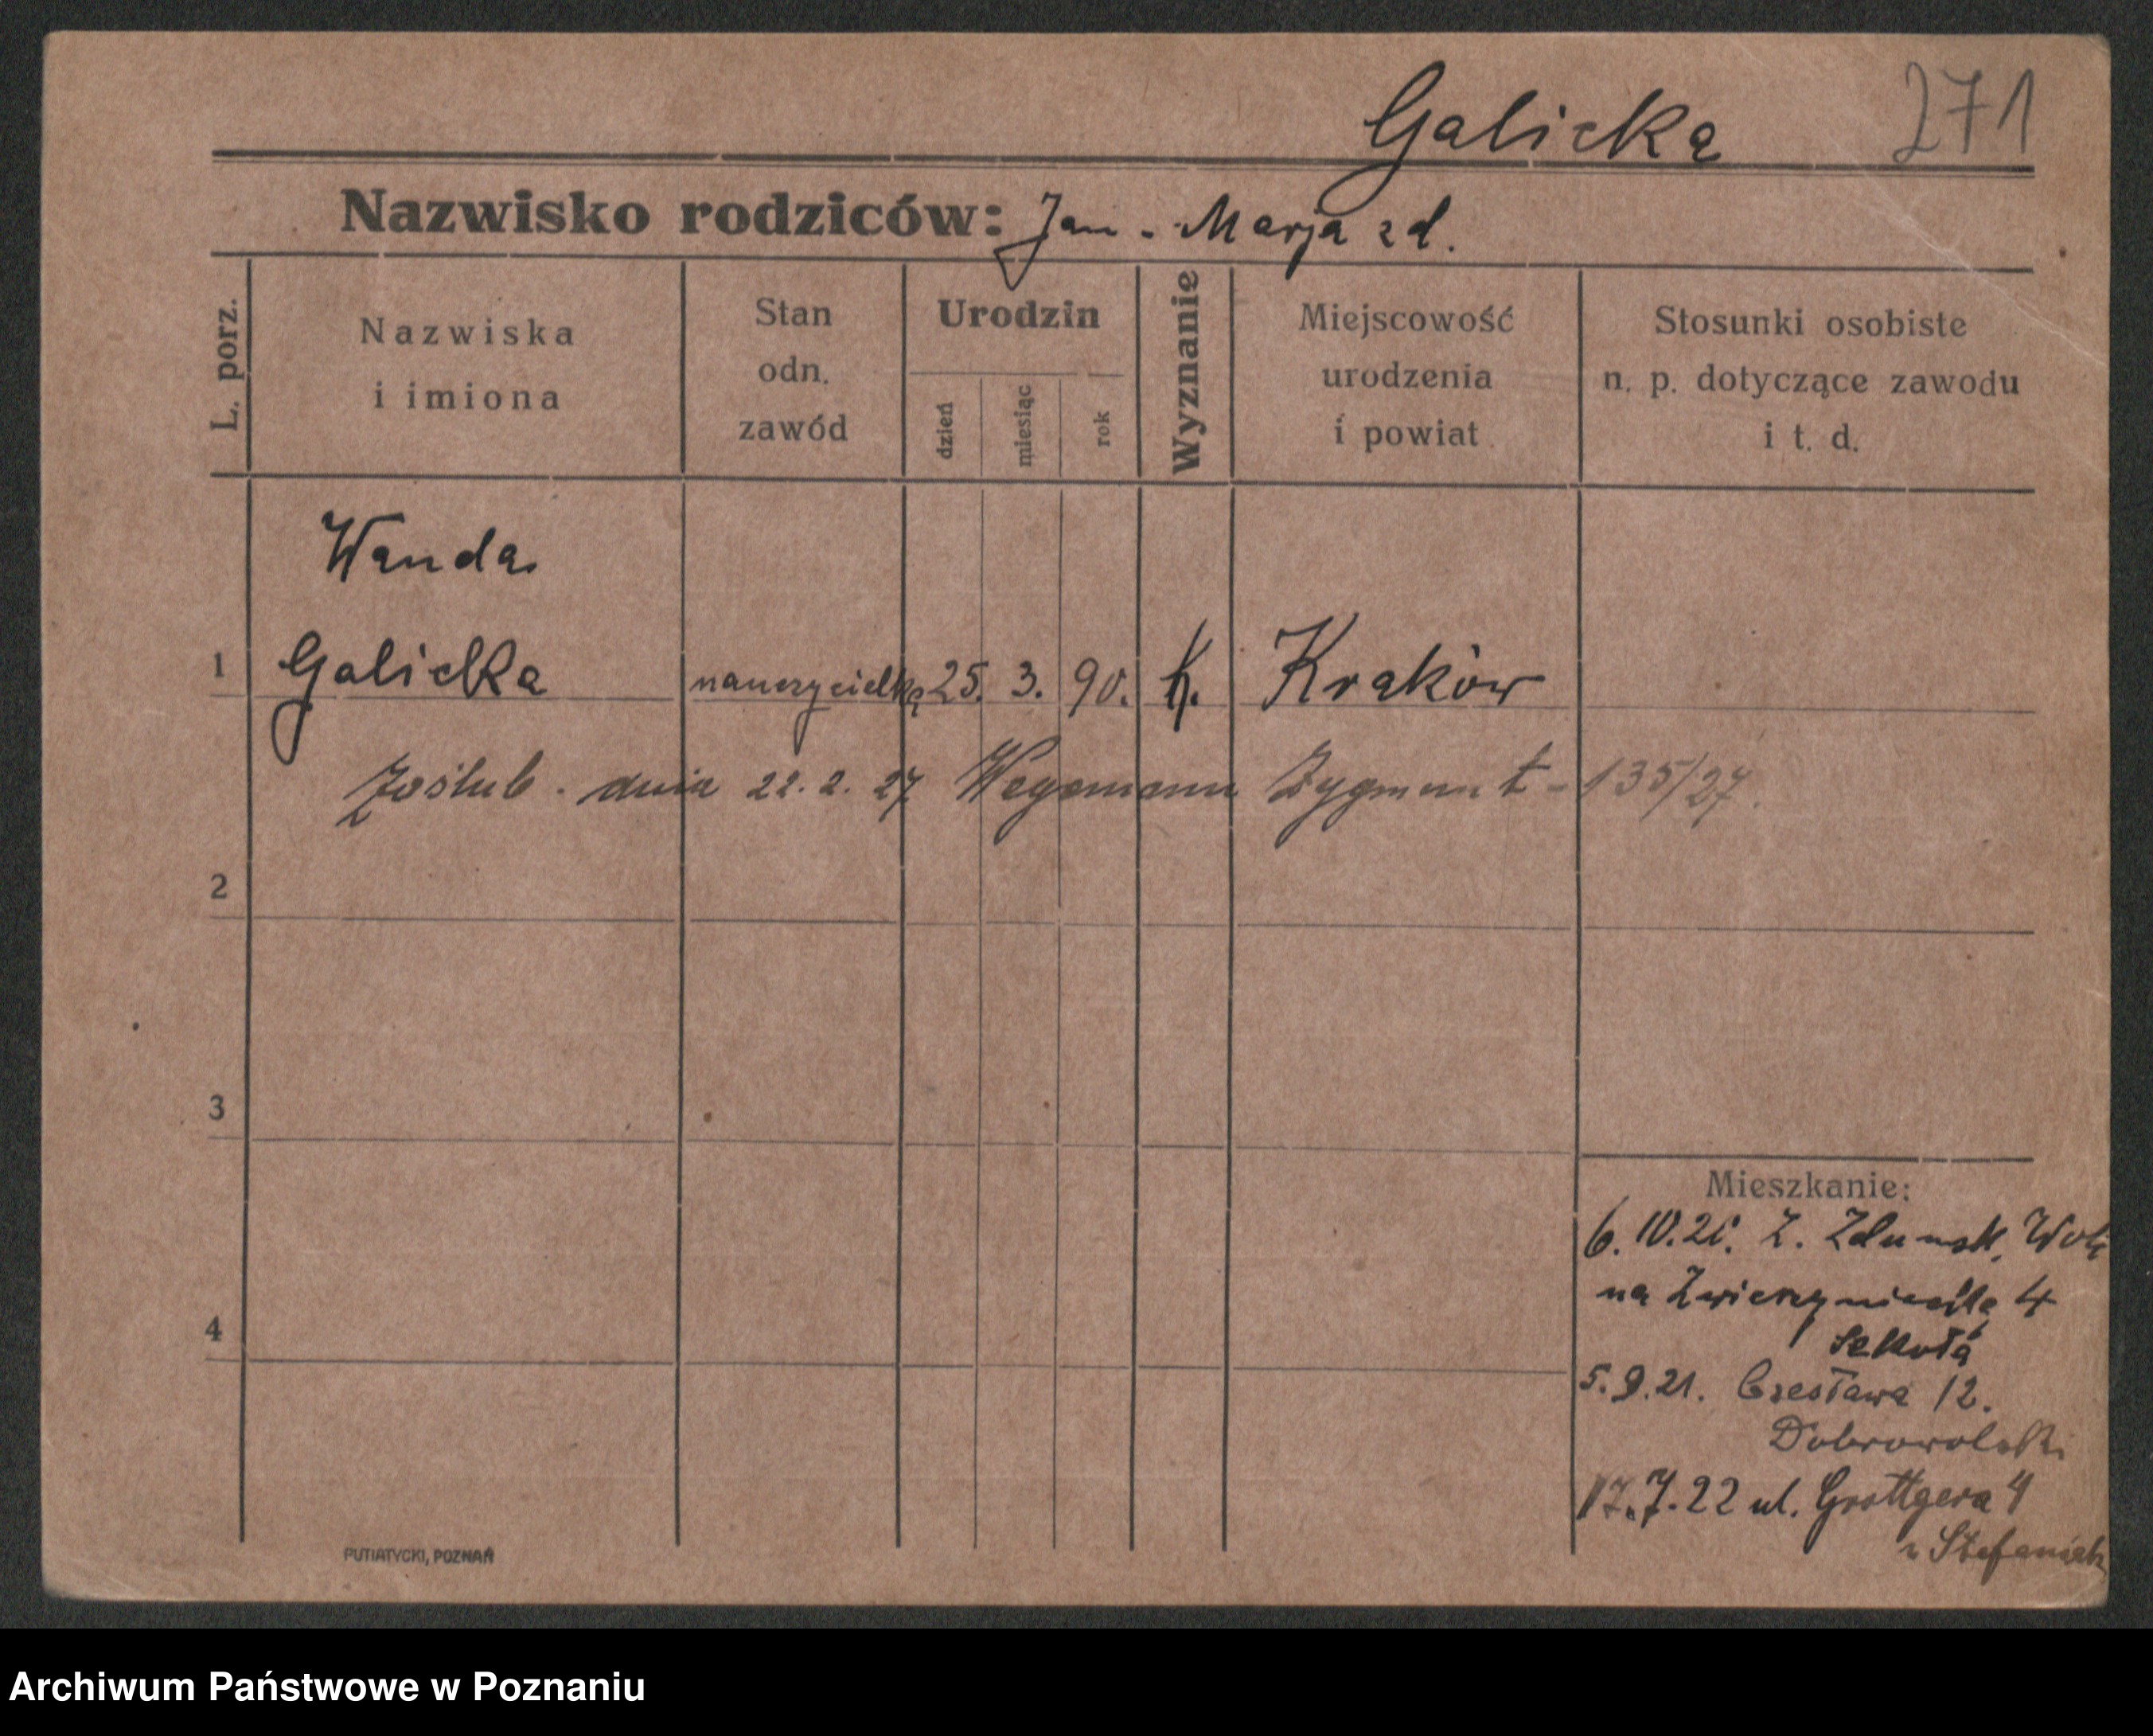 Galicka 271
Nazwisko rodziców: Jan - Marja zd.
L. porz.
Nazwiska
i imiona
Stan
odn.
zawód
Urodzin
dzień
miesiąc
rok
Wyznanie
Miejscowość
urodzenia
i powiat
Stosunki osobiste
n. p. dotyczące zawodu
i t. d.
Wanda
1 Galicka nauczycielka 25. 3. 90. K. Kraków
Zaślub. dnia 22. 2. 27 Wegemann Zygmunt - 135/27.
2
3
4
Mieszkanie:
6. IV. 21. Z. Zduńsk. Woli
na Zwierzyniecka 4
5. 9. 21. Czesława 12.
Dobrowolski
17. 7. 22 ul. Grottgera 4
PUTIATYCKI, POZNAŃ
Archiwum Państwowe w Poznaniu